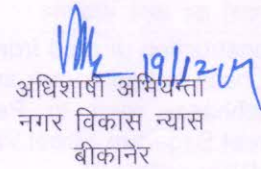 19/12
अधिशाषी अभियन्ता
नगर विकास न्यास
बीकानेर